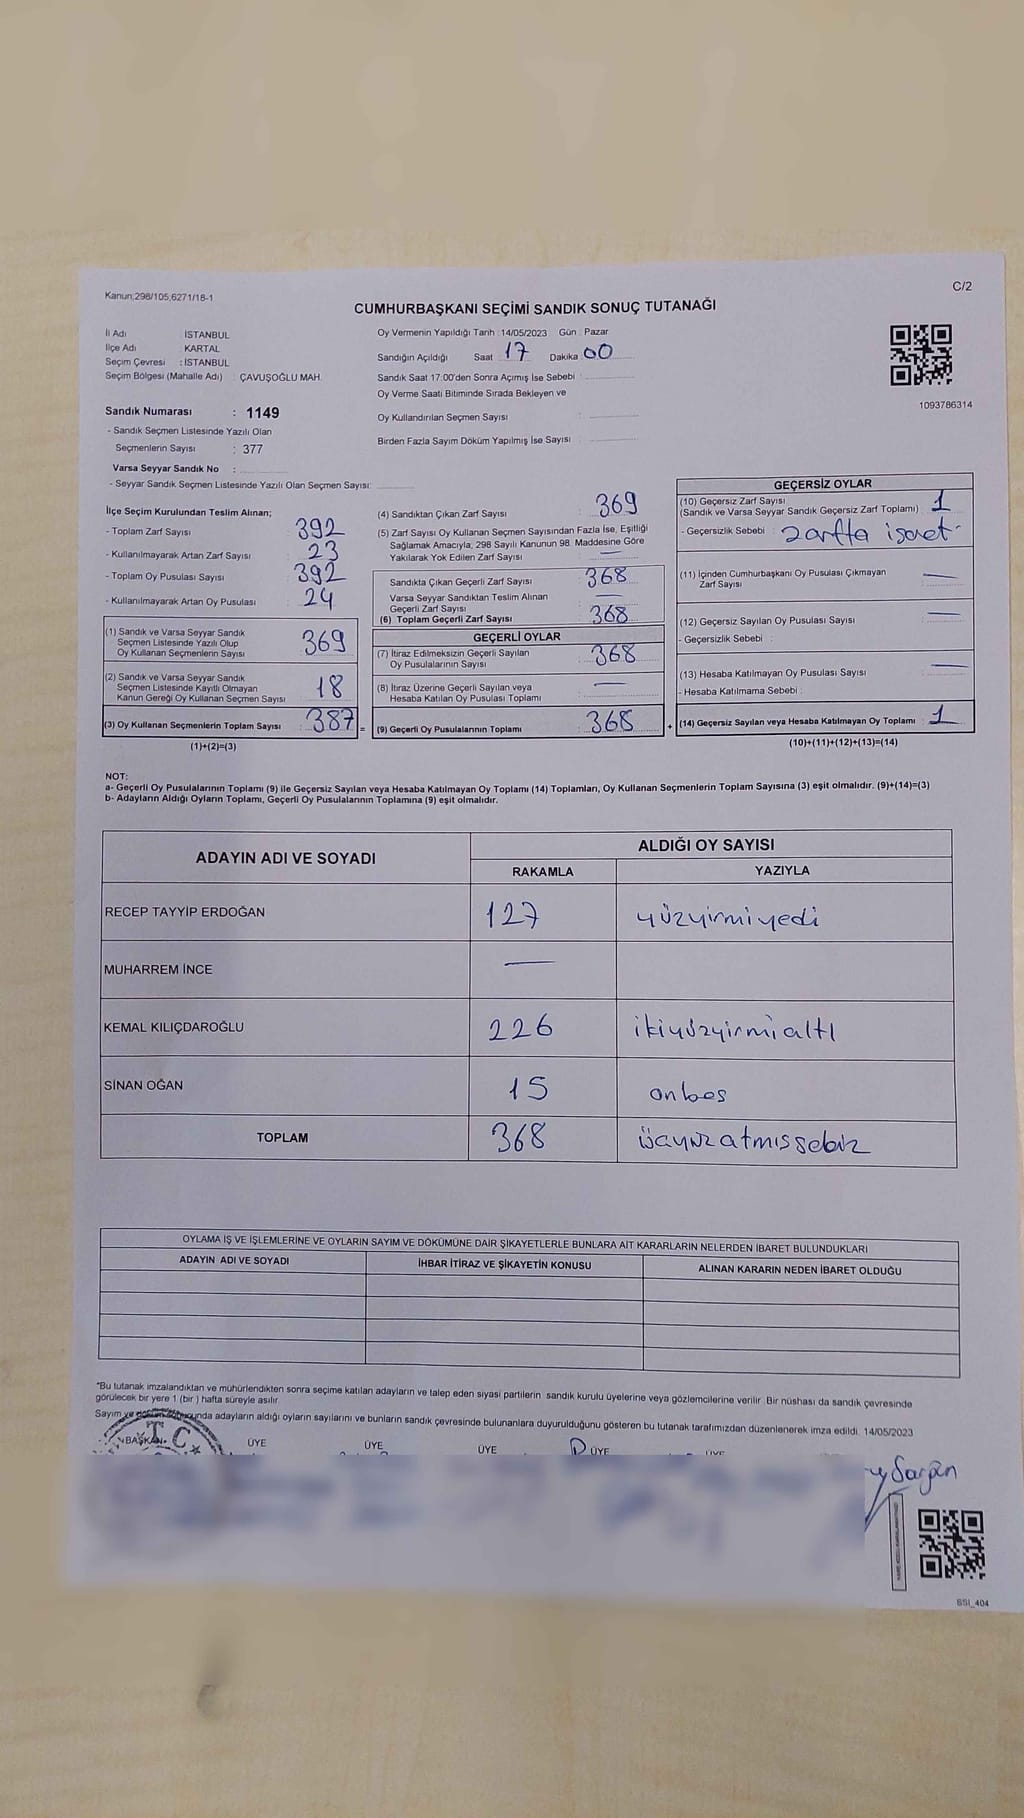 Kanun;298/105,6271/18-1
C/2
CUMHURBAŞKANI SEÇİMİ SANDIK SONUÇ TUTANAĞI
İl Adı İSTANBUL
İlçe Adı KARTAL
Seçim Çevresi : İSTANBUL
Seçim Bölgesi (Mahalle Adı) : ÇAVUŞOĞLU MAH.
Sandık Numarası : 1149
- Sandık Seçmen Listesinde Yazılı Olan
Seçmenlerin Sayısı : 377
Varsa Seyyar Sandık No :
- Seyyar Sandık Seçmen Listesinde Yazılı Olan Seçmen Sayısı:
Oy Vermenin Yapıldığı Tarih :14/05/2023 Gün : Pazar
Sandığın Açıldığı Saat 17 Dakika 00
Sandık Saat 17:00'den Sonra Açımış İse Sebebi :
Oy Verme Saati Bitiminde Sırada Bekleyen ve
Oy Kullandırılan Seçmen Sayısı :
Birden Fazla Sayım Döküm Yapılmış İse Sayısı :
1093786314
İlçe Seçim Kurulundan Teslim Alınan;
- Toplam Zarf Sayısı : 392
- Kullanılmayarak Artan Zarf Sayısı : 23
- Toplam Oy Pusulası Sayısı : 392
- Kullanılmayarak Artan Oy Pusulası : 24
(1) Sandık ve Varsa Seyyar Sandık
Seçmen Listesinde Yazılı Olup
Oy Kullanan Seçmenlerin Sayısı : 369
(2) Sandık ve Varsa Seyyar Sandık
Seçmen Listesinde Kayıtlı Olmayan
Kanun Gereği Oy Kullanan Seçmen Sayısı : 18
(3) Oy Kullanan Seçmenlerin Toplam Sayısı : 387 =
(1)+(2)=(3)
(4) Sandıktan Çıkan Zarf Sayısı : 369
(5) Zarf Sayısı Oy Kullanan Seçmen Sayısından Fazla İse, Eşitliği
Sağlamak Amacıyla; 298 Sayılı Kanunun 98. Maddesine Göre
Yakılarak Yok Edilen Zarf Sayısı : —
Sandıkta Çıkan Geçerli Zarf Sayısı : 368
Varsa Seyyar Sandıktan Teslim Alınan
Geçerli Zarf Sayısı : —
(6) Toplam Geçerli Zarf Sayısı : 368
GEÇERLİ OYLAR
(7) İtiraz Edilmeksizin Geçerli Sayılan
Oy Pusulalarının Sayısı : 368
(8) İtiraz Üzerine Geçerli Sayılan veya
Hesaba Katılan Oy Pusulası Toplamı : —
(9) Geçerli Oy Pusulalarının Toplamı : 368 +
GEÇERSİZ OYLAR
(10) Geçersiz Zarf Sayısı
(Sandık ve Varsa Seyyar Sandık Geçersiz Zarf Toplamı) : 1
- Geçersizlik Sebebi : zarfta işaret
(11) İçinden Cumhurbaşkanı Oy Pusulası Çıkmayan
Zarf Sayısı : —
(12) Geçersiz Sayılan Oy Pusulası Sayısı : —
- Geçersizlik Sebebi :
(13) Hesaba Katılmayan Oy Pusulası Sayısı : —
- Hesaba Katılmama Sebebi :
(14) Geçersiz Sayılan veya Hesaba Katılmayan Oy Toplamı : 1
(10)+(11)+(12)+(13)=(14)
NOT:
a- Geçerli Oy Pusulalarının Toplamı (9) ile Geçersiz Sayılan veya Hesaba Katılmayan Oy Toplamı (14) Toplamları, Oy Kullanan Seçmenlerin Toplam Sayısına (3) eşit olmalıdır. (9)+(14)=(3)
b- Adayların Aldığı Oyların Toplamı, Geçerli Oy Pusulalarının Toplamına (9) eşit olmalıdır.
ADAYIN ADI VE SOYADI
ALDIĞI OY SAYISI
RAKAMLA YAZIYLA
RECEP TAYYİP ERDOĞAN 127 yüzyirmiyedi
MUHARREM İNCE —
KEMAL KILIÇDAROĞLU 226 ikiyüzyirmialtı
SİNAN OĞAN 15 onbeş
TOPLAM 368 üçyüzatmışsekiz
OYLAMA İŞ VE İŞLEMLERİNE VE OYLARIN SAYIM VE DÖKÜMÜNE DAİR ŞİKAYETLERLE BUNLARA AİT KARARLARIN NELERDEN İBARET BULUNDUKLARI
ADAYIN ADI VE SOYADI İHBAR İTİRAZ VE ŞİKAYETİN KONUSU ALINAN KARARIN NEDEN İBARET OLDUĞU
*Bu tutanak imzalandıktan ve mühürlendikten sonra seçime katılan adayların ve talep eden siyasi partilerin sandık kurulu üyelerine veya gözlemcilerine verilir. Bir nüshası da sandık çevresinde
görülecek bir yere 1 (bir ) hafta süreyle asılır.
Sayım ve adayların aldığı oyların sayılarını ve bunların sandık çevresinde bulunanlara duyurulduğunu gösteren bu tutanak tarafımızdan düzenlenerek imza edildi. 14/05/2023
T.C.
BAŞKAN ÜYE ÜYE ÜYE ÜYE ÜYE
SSI_404